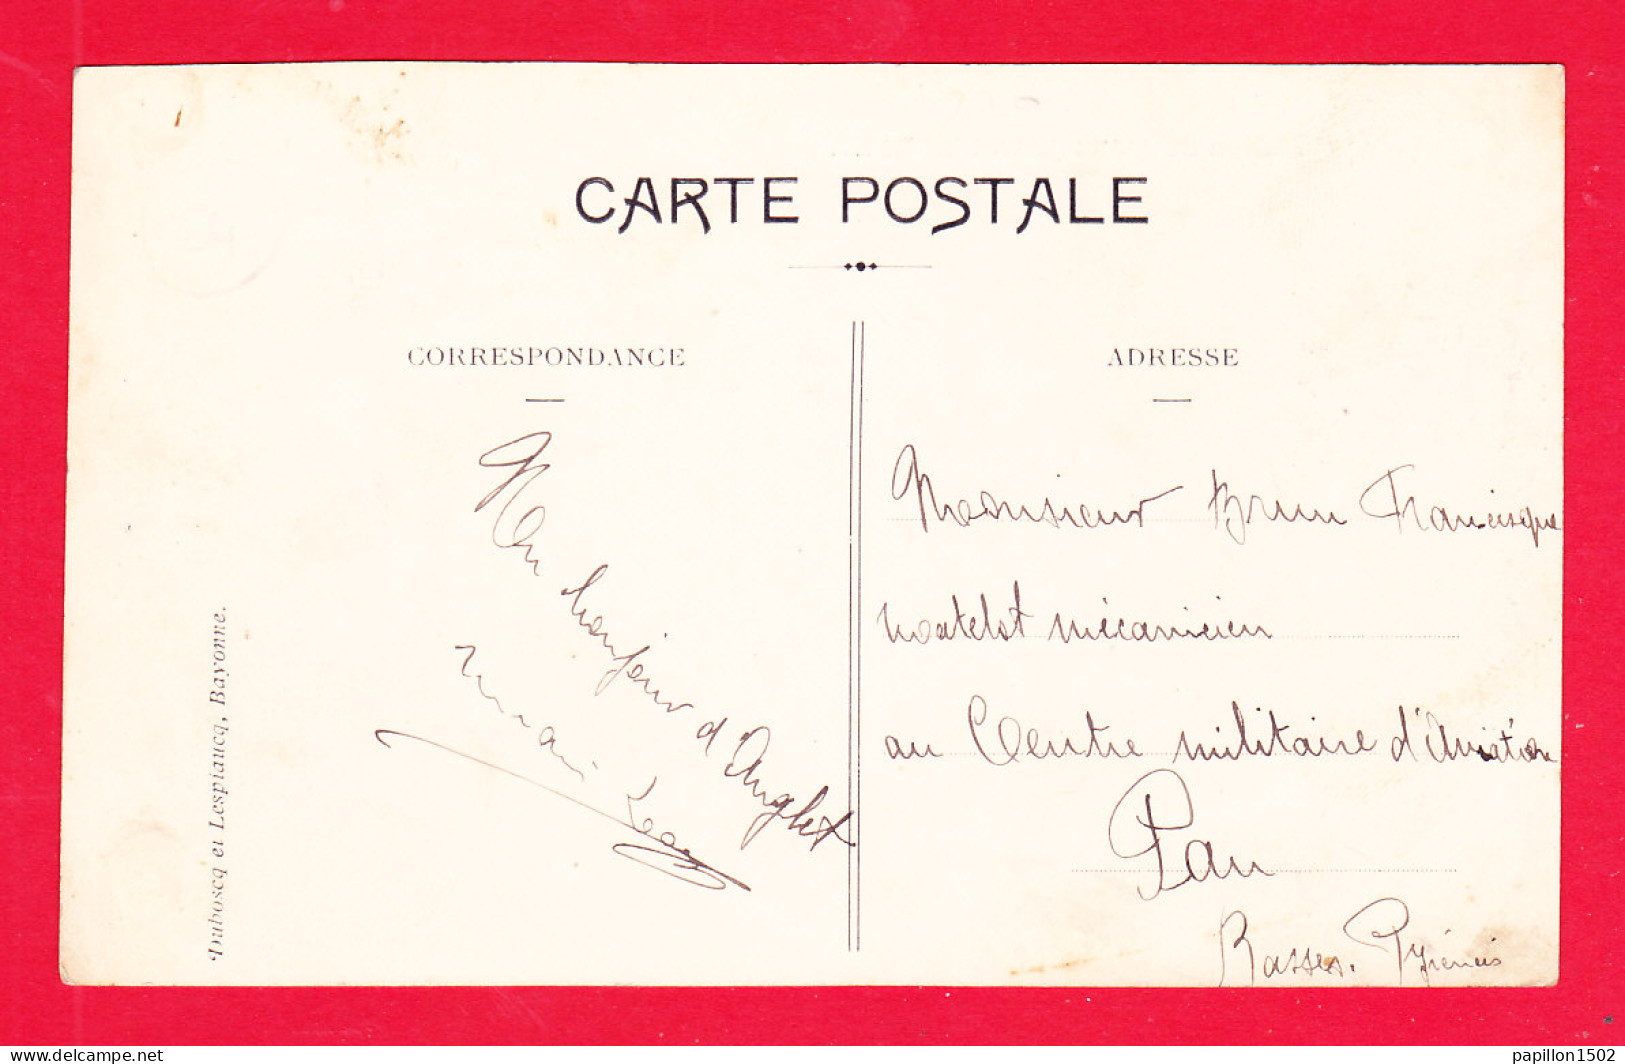 CARTE POSTALE
CORRESPONDANCE
ADRESSE
Un bonjour d'Anglet
Monsieur Brun Francisque
matelot mécanicien
au Centre militaire d'Aviation
Pau
Basses-Pyrénées
Duboscq et Lespiaucq, Bayonne.
www.delcampe.net
papillon1502